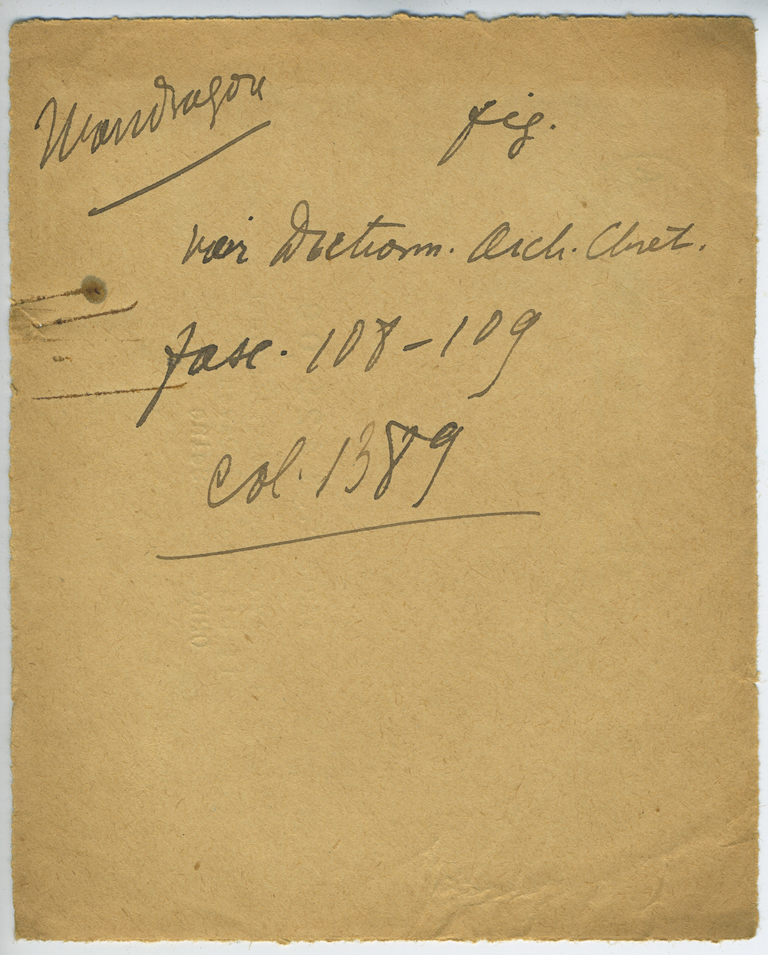 Mandragon
fig.
voir Dictionn. Arch. Chret.
fasc. 108-109
col. 1389